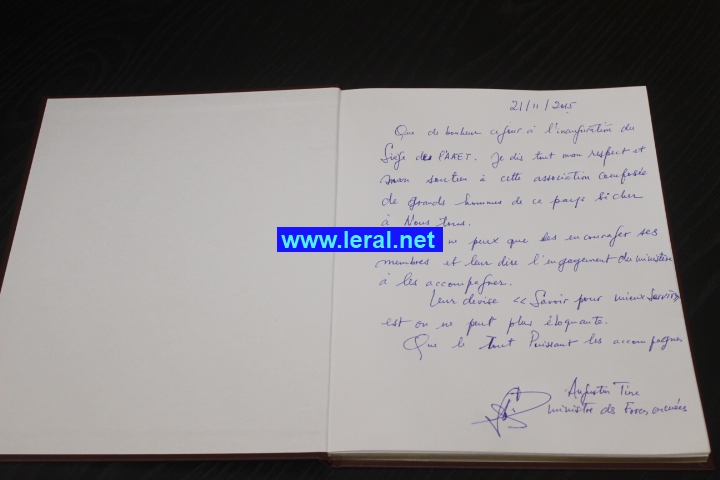 21/11/2015
Que de bonheur ce jour à l'inauguration du
Siège de l'AAET. Je dis tout mon respect et
mon soutien à cette association composée
de grands hommes de ce pays si cher
à Nous tous.
www.leral.net
ne peux que les encourager ses
membres et leur dire l'engagement du ministère
à les accompagner.
Leur devise << Savoir pour mieux Servir>>
est on ne peut plus éloquante.
Que le Tout Puissant les accompagne
Augustin Tine
Ministre des Forces armées